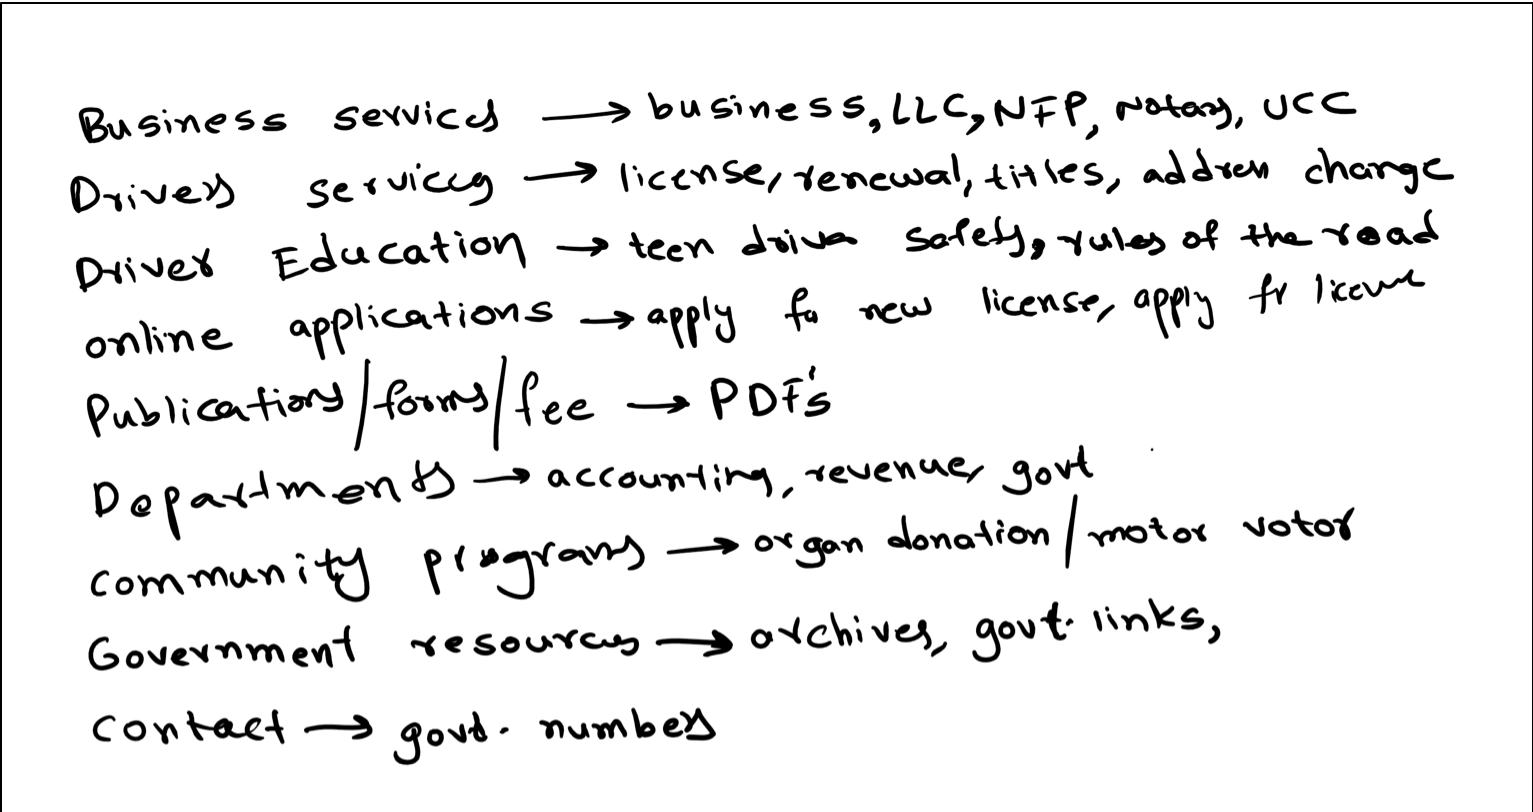 Business services → business, LLC, NFP, Notary, UCC
Drivers services → license, renewal, titles, address change
Driver Education → teen driver safety, rules of the road
online applications → apply for new license, apply fr license
Publications/forms/fee → PDF's
Departments → accounting, revenue, govt
community programs → organ donation/motor votor
Government resources → archives, govt. links,
contact → govt. numbers